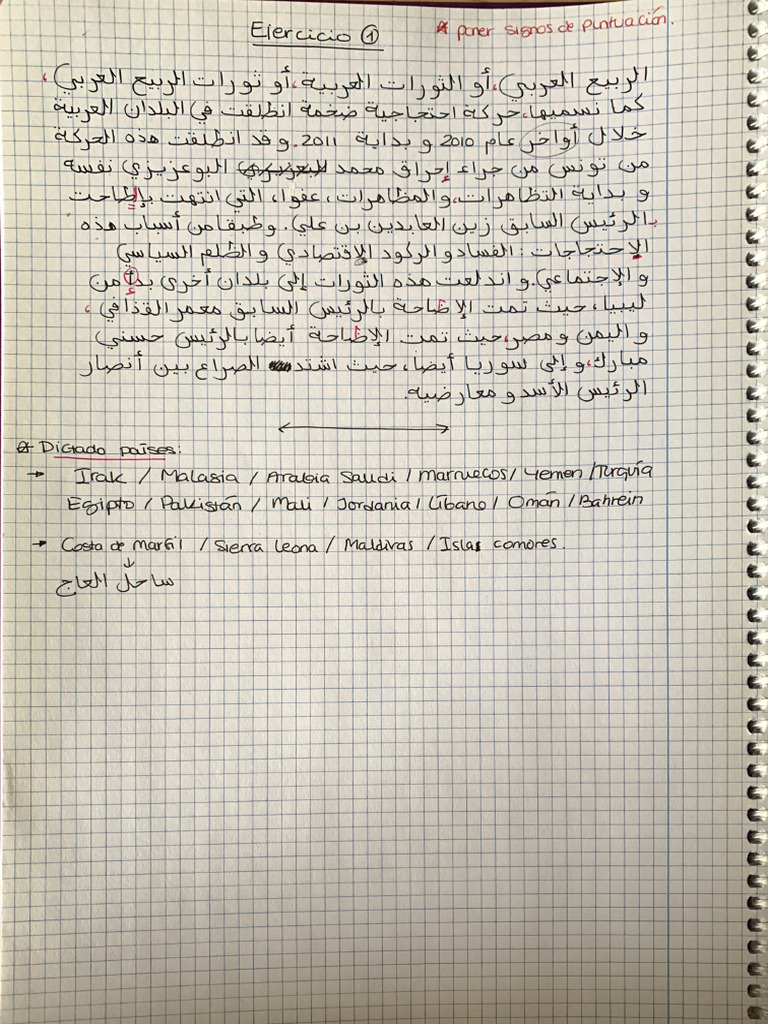 Ejercicio ①
* poner signos de puntuación.
الربيع العربي، أو الثورات العربية، أو ثورات الربيع العربي،
كما نسميها، حركة احتجاجية ضخمة انطلقت في البلدان العربية
خلال أواخر عام 2010 و بداية 2011. و قد انطلقت هذه الحركة
من تونس من جراء إحراق محمد البوعزيزي نفسه
و بداية التظاهرات، والمظاهرات، عفوا، التي انتهت بإطاحت
بالرئيس السابق زين العابدين بن علي. و طبقا من أسباب هذه
الإحتجاجات: الفساد و الركود الإقتصادي و الظلم السياسي
و الإجتماعي. و اندلعت هذه الثورات إلى بلدان أخرى بدأ من
ليبيا، حيث تمت الإطاحة بالرئيس السابق معمر القذافي،
و اليمن و مصر، حيث تمت الإطاحة أيضا بالرئيس حسني
مبارك، و إلى سوريا أيضا، حيث اشتد الصراع بين أنصار
الرئيس الأسد و معارضيه.
* Dictado países:
→ Irak / Malasia / Arabia Saudi / marruecos / Yemen / Turquía
Egipto / Pakistán / Mali / Jordania / Líbano / Omán / Bahrein
→ Costa de marfil / Sierra Leona / Maldivas / Islas comores.
ساحل العاج